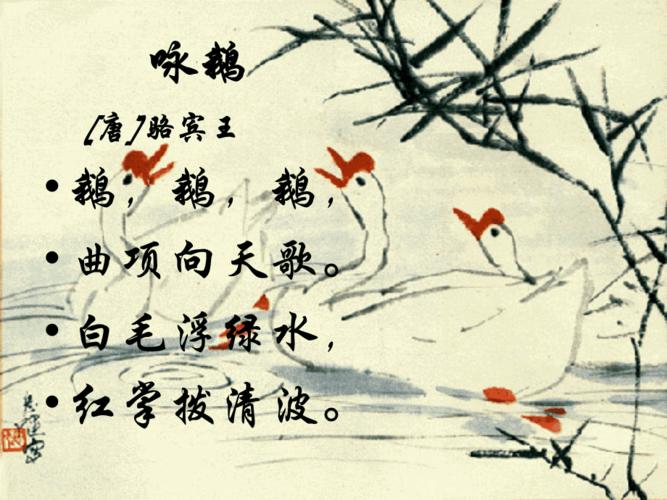 咏鹅
[唐]骆宾王
• 鹅，鹅，鹅，
• 曲项向天歌。
• 白毛浮绿水，
• 红掌拨清波。